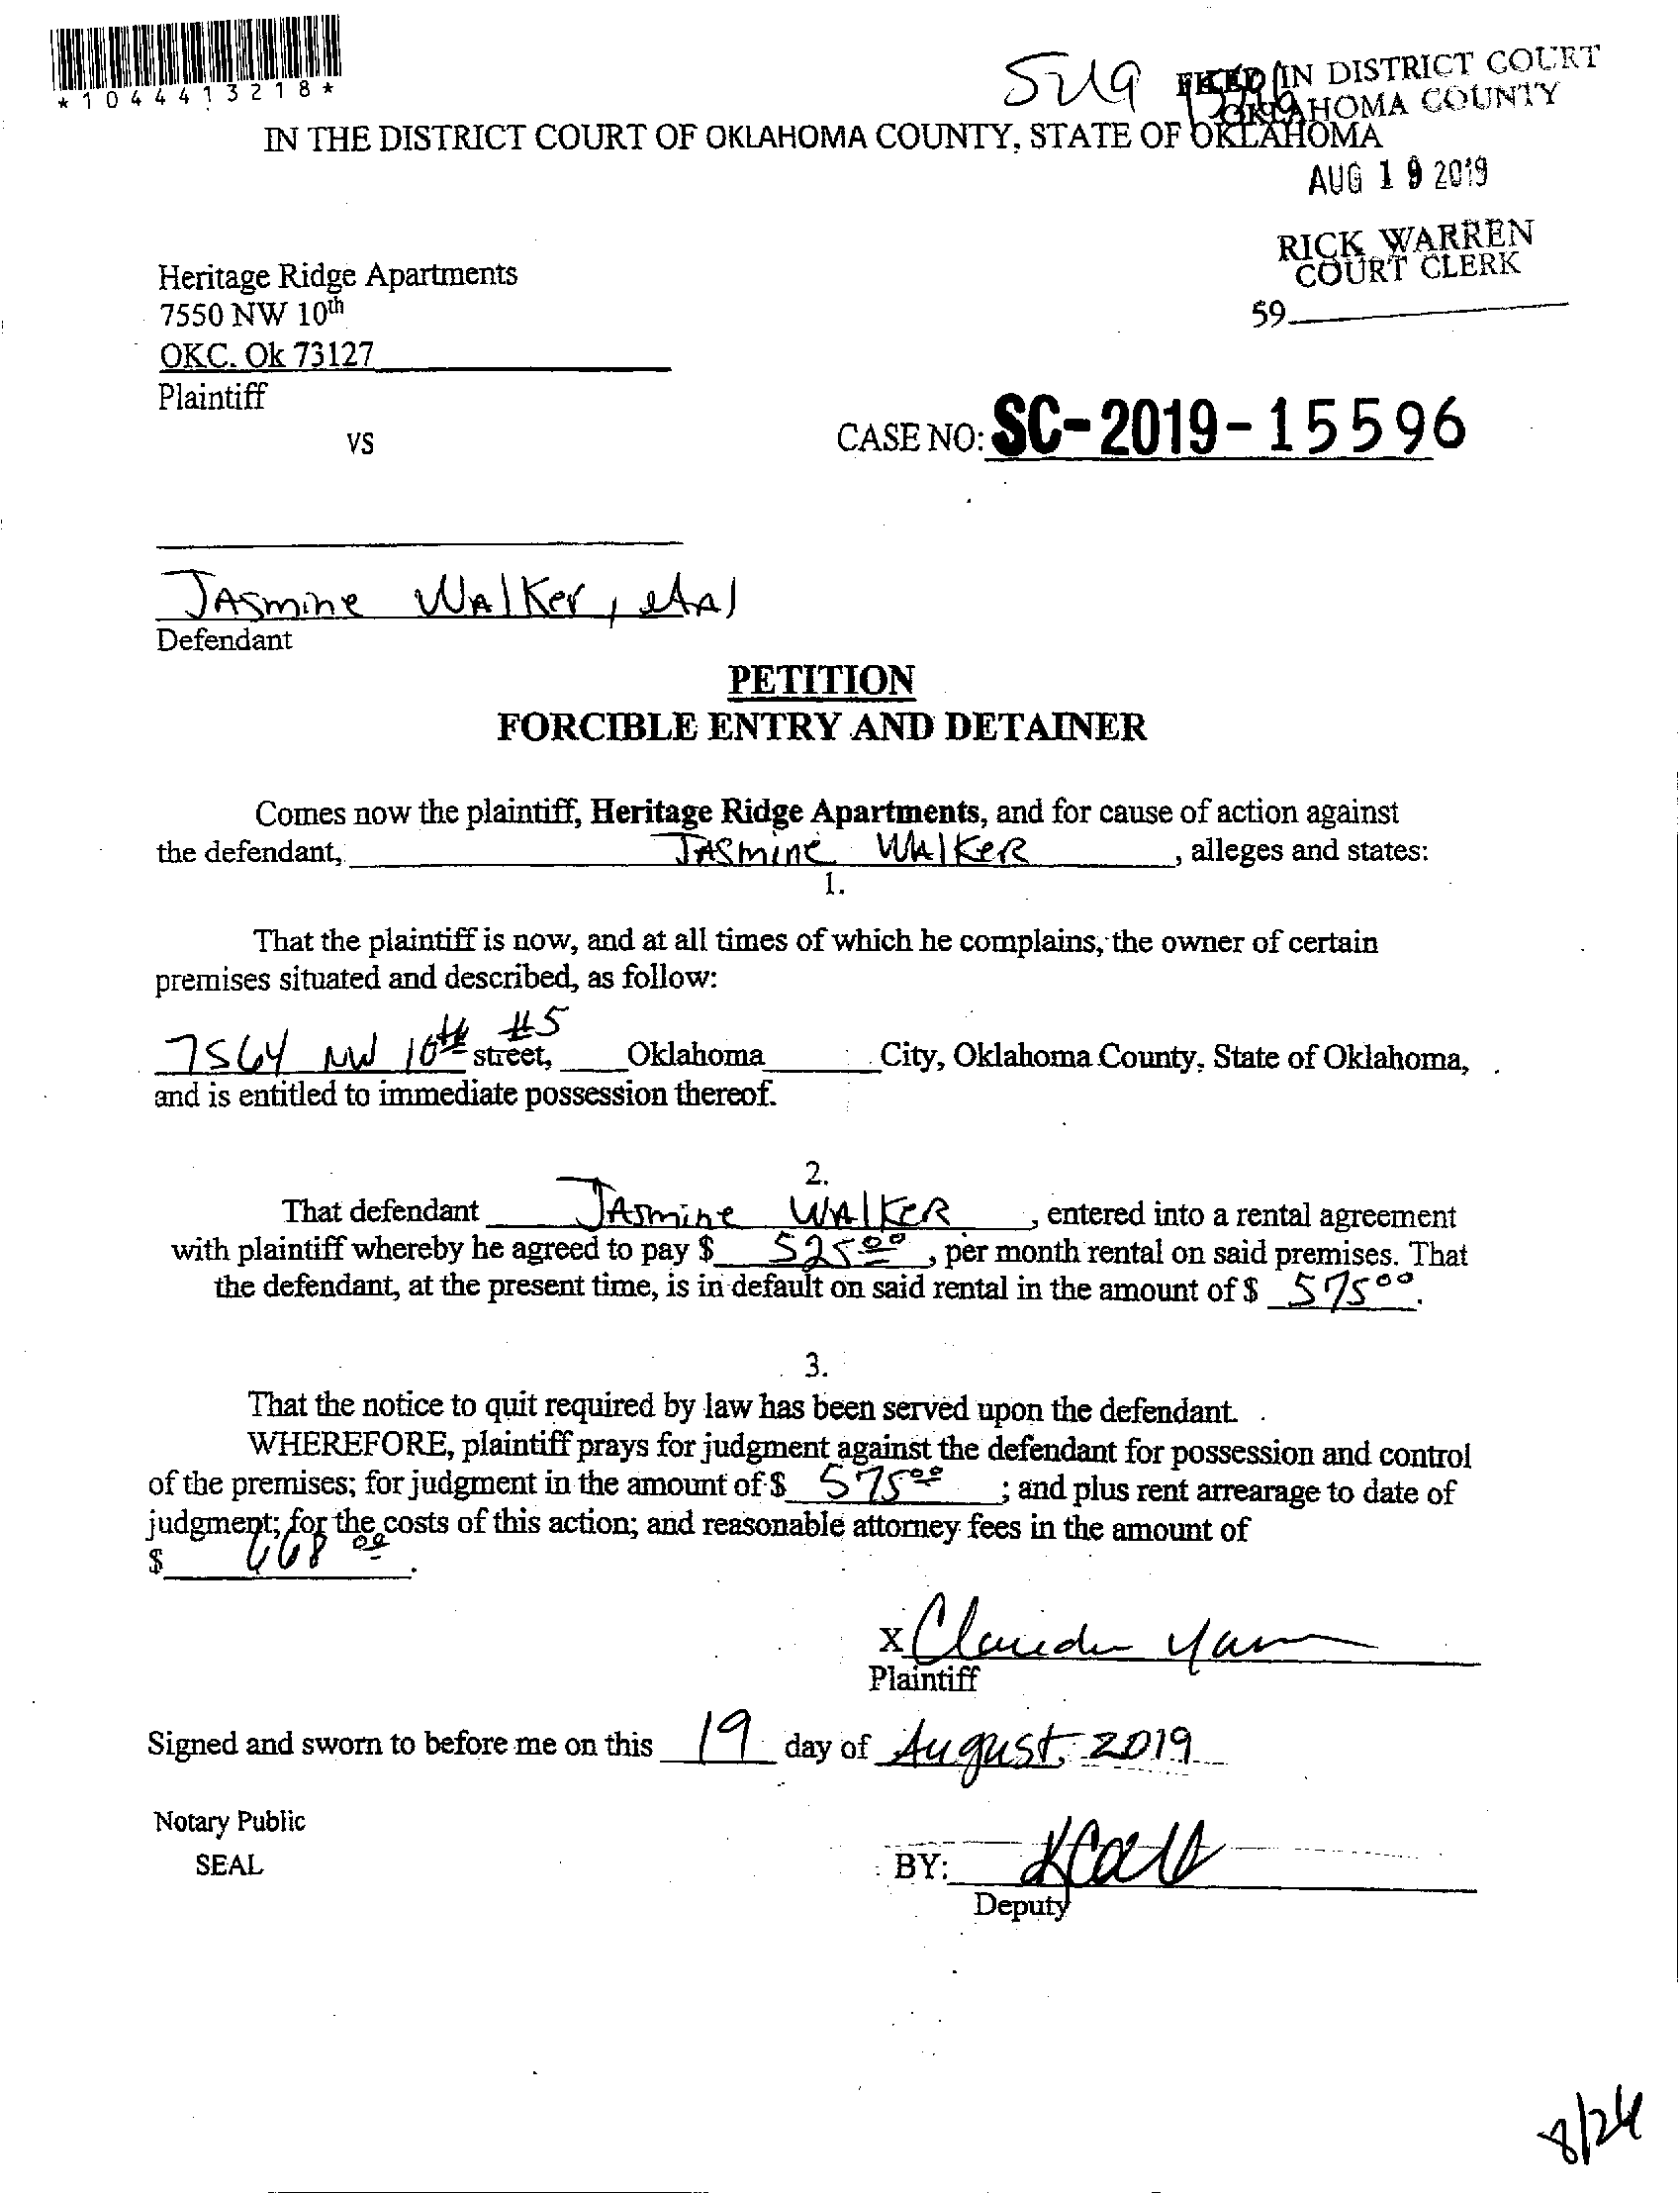 *1044413218*
SUG FILED IN DISTRICT COURT
OKLAHOMA COUNTY
IN THE DISTRICT COURT OF OKLAHOMA COUNTY, STATE OF OKLAHOMA
AUG 19 2019
RICK WARREN
COURT CLERK
59
Heritage Ridge Apartments
7550 NW 10th
OKC. Ok 73127
Plaintiff
VS
CASE NO: SC-2019-15596
JASmine WAlKer, etAl
Defendant
PETITION
FORCIBLE ENTRY AND DETAINER
Comes now the plaintiff, Heritage Ridge Apartments, and for cause of action against
the defendant, JASmine WAlKeR, alleges and states:
1.
That the plaintiff is now, and at all times of which he complains, the owner of certain
premises situated and described, as follow:
7564 NW 10th #5 street, Oklahoma City, Oklahoma County, State of Oklahoma,
and is entitled to immediate possession thereof.
2.
That defendant JASmine WAlKeR, entered into a rental agreement
with plaintiff whereby he agreed to pay $ 525 00, per month rental on said premises. That
the defendant, at the present time, is in default on said rental in the amount of $ 575 00.
3.
That the notice to quit required by law has been served upon the defendant.
WHEREFORE, plaintiff prays for judgment against the defendant for possession and control
of the premises; for judgment in the amount of $ 575 00 ; and plus rent arrearage to date of
judgment; for the costs of this action; and reasonable attorney fees in the amount of
$ 668 00.
X
Plaintiff
Signed and sworn to before me on this 19 day of August, 2019
Notary Public
SEAL
BY:
Deputy
8/26